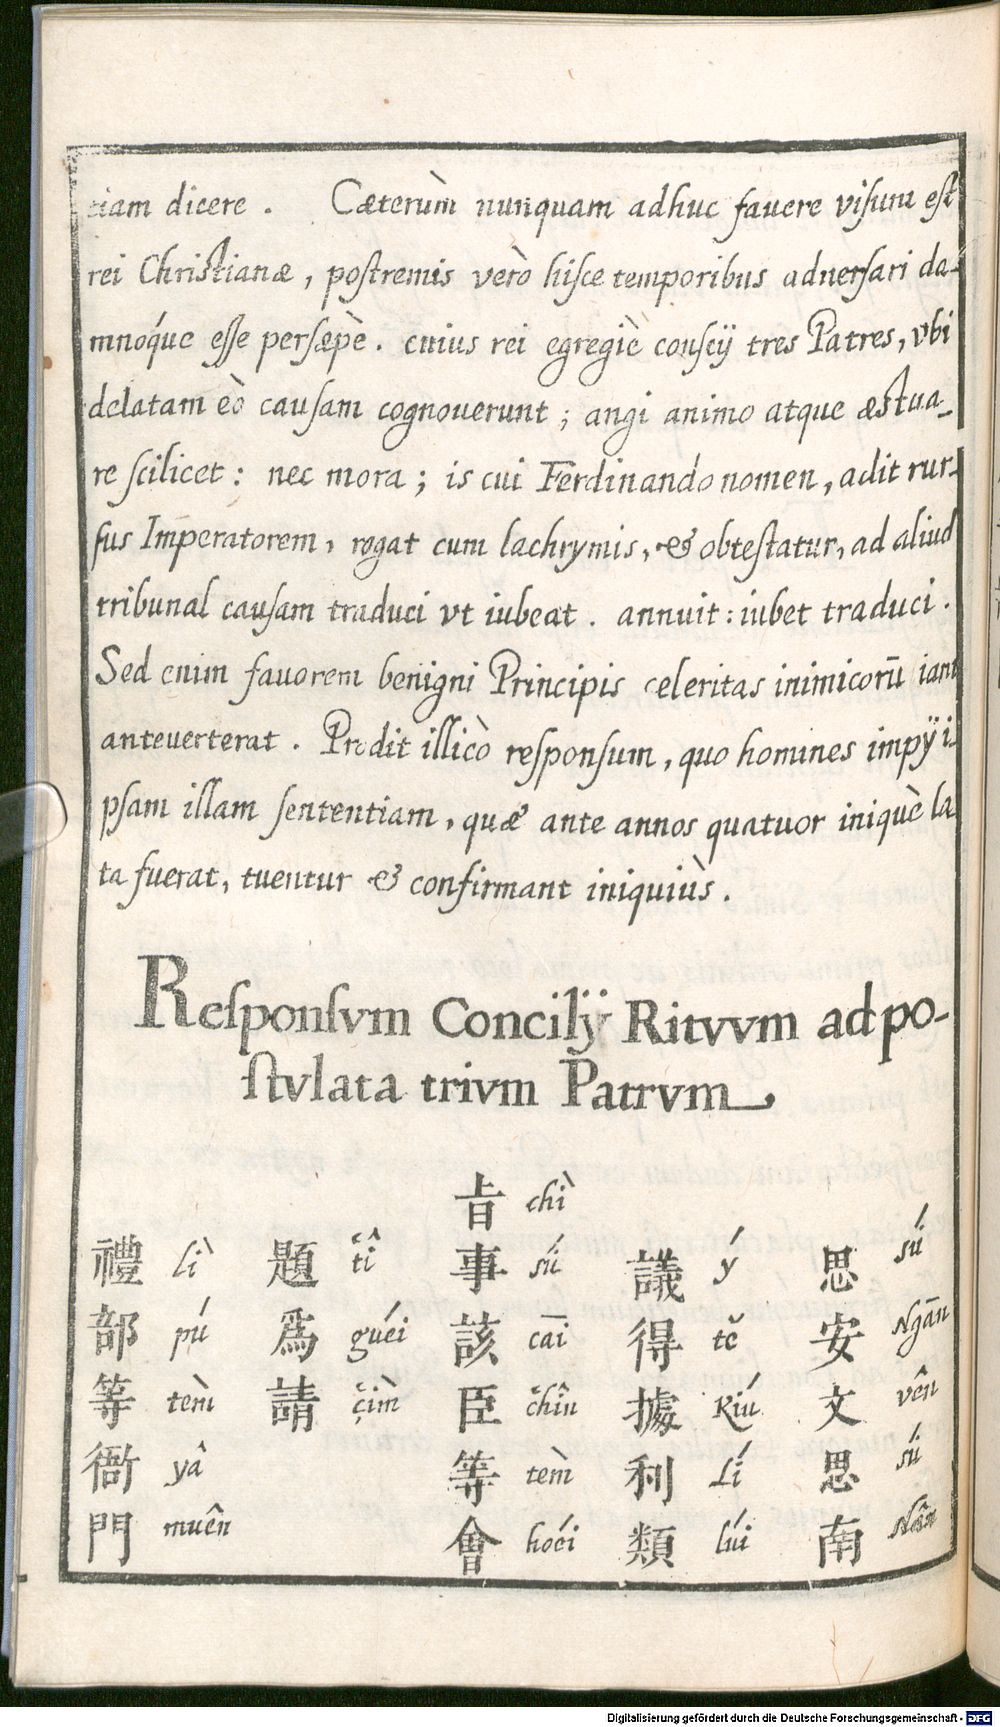 tiam dicere . Cæterùm nunquam adhuc fauere visum est
rei Christianæ, postremis verò hisce temporibus aduersari da-
mnoq́ue esse persæpè. cuius rei egregiè conscij tres Patres, vbi
delatam eò causam cognouerunt ; angi animo atque æstua-
re scilicet : nec mora ; is cui Ferdinando nomen, adit rur-
sus Imperatorem, rogat cum lachrymis, & obtestatur, ad aliud
tribunal causam traduci vt iubeat . annuit : iubet traduci .
Sed enim fauorem benigni Principis celeritas inimicorū iam
anteuerterat . Prodit illicò responsum, quo homines impÿ i-
psam illam sententiam, quæ ante annos quatuor iniquè la-
ta fuerat, tuentur & confirmant iniquiùs .
Responsvm Concilÿ Ritvvm ad po-
stvlata trivm Patrvm
禮 lì 部 pú 等 tèm 衙 yâ 門 muên
題 tî 爲 guéi 請 çìm
旨 chì 事 sú 該 cāi 臣 chîn 等 tèm 會 hoéi
議 ý 得 tĕ 據 Kiú 利 Lí 類 lúi
思 sú 安 Ngān 文 vên 思 sú 南 Nân